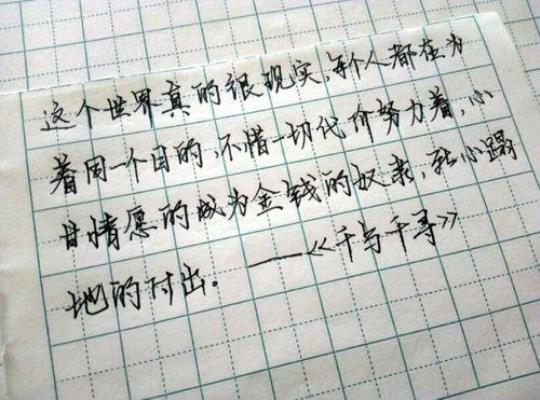 这个世界真的很现实,每个人都在为
着同一个目的,不惜一切代价努力着,心
甘情愿的成为金钱的奴隶,死心蹋
地的付出。——《千与千寻》